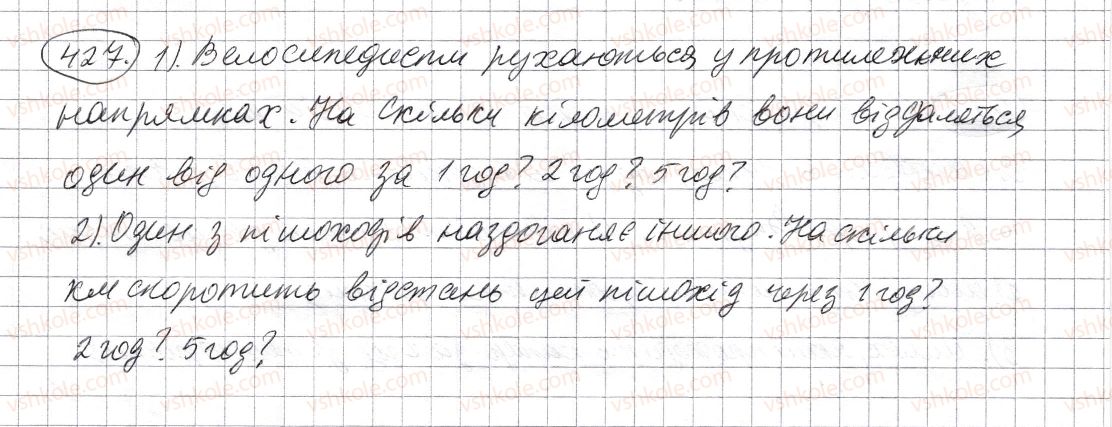 427. 1). Велосипедисти рухаються у протилежних
напрямках. На скільки кілометрів вони віддаляться
один від одного за 1 год? 2 год? 5 год?
2). Один з пішоходів наздоганяє іншого. На скільки
км скоротить відстань цей пішохід через 1 год?
2 год? 5 год?